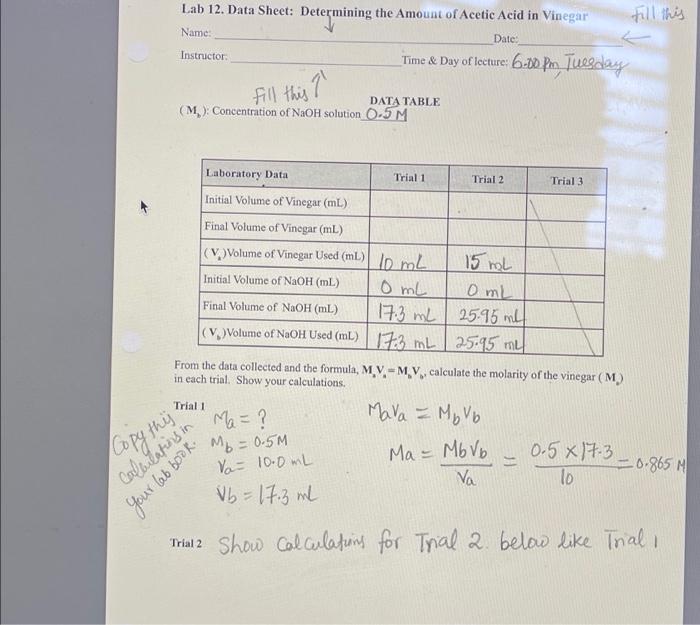 Lab 12. Data Sheet: Determining the Amount of Acetic Acid in Vinegar Fill this
Name: Date:
Instructor: Time & Day of lecture: 6:00 Pm, Tuesday
Fill this
DATA TABLE
(M_b): Concentration of NaOH solution 0.5 M
Laboratory Data Trial 1 Trial 2 Trial 3
Initial Volume of Vinegar (mL)
Final Volume of Vinegar (mL)
(V_a)Volume of Vinegar Used (mL) 10 mL 15 mL
Initial Volume of NaOH (mL) 0 mL 0 mL
Final Volume of NaOH (mL) 17.3 mL 25.95 mL
(V_b)Volume of NaOH Used (mL) 17.3 mL 25.95 mL
From the data collected and the formula, M_aV_a = M_bV_b, calculate the molarity of the vinegar ( M_a)
in each trial. Show your calculations.
Trial 1
Copy this
calculations in
your lab book.
Ma = ?
Mb = 0.5M
Va = 10.0 mL
Vb = 17.3 mL
MaVa = MbVb
Ma = MbVb / Va = 0.5 × 17.3 / 10 = 0.865 M
Trial 2 Show Calculations for Trial 2. below like Trial 1